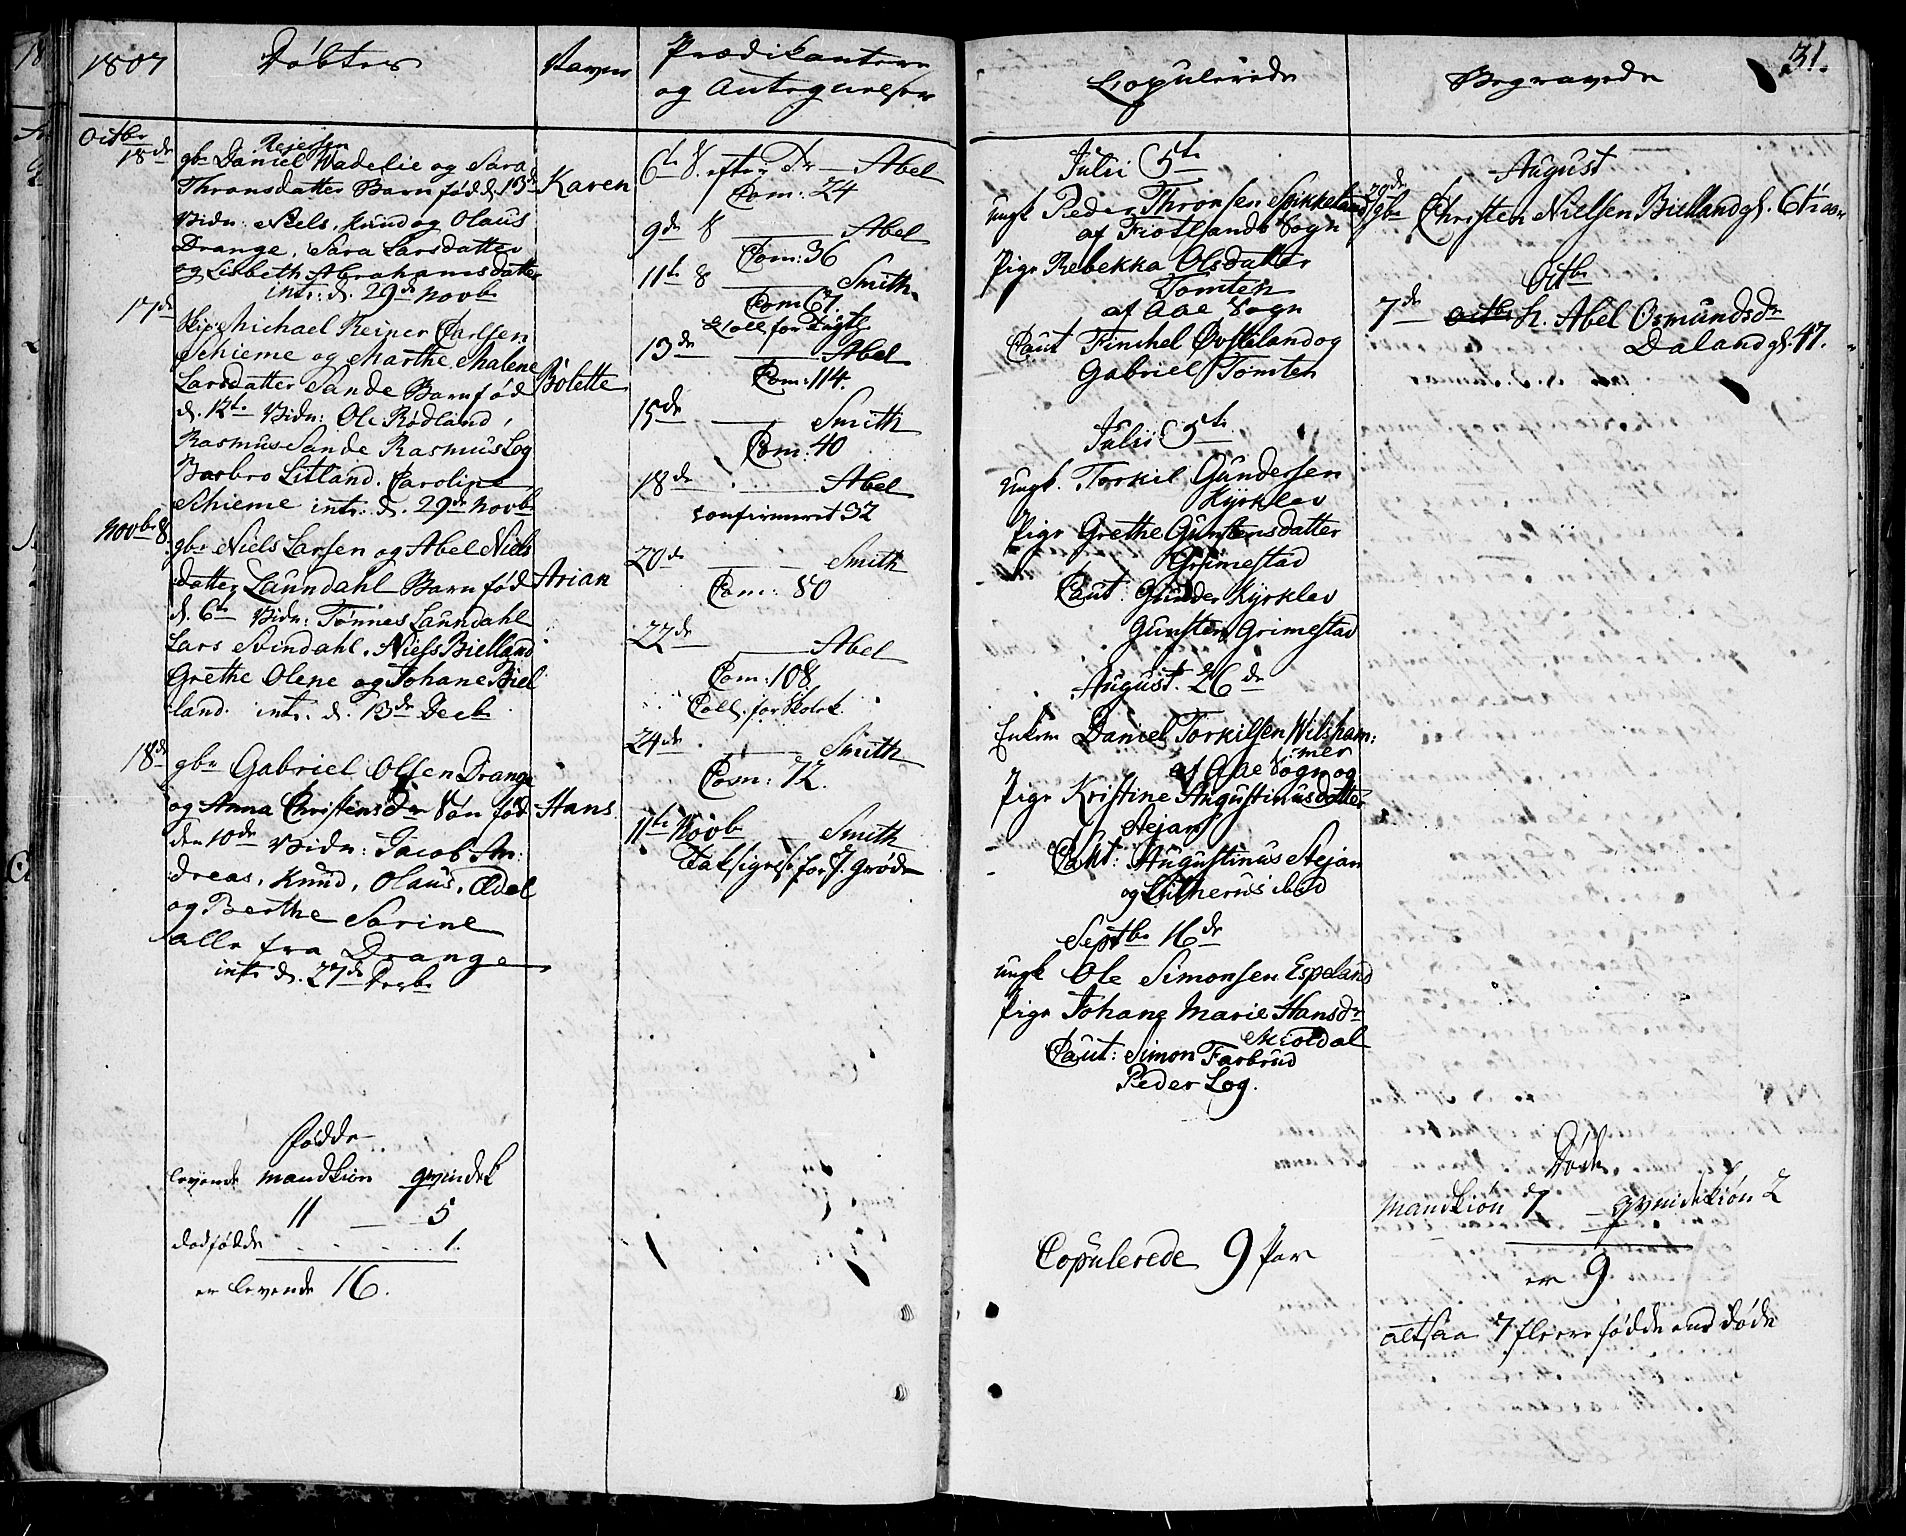 1807
Døbte
Navne
Prædikantere
og Antegnelser
Octbr
18de
Rejersen
gbr Daniel Wadelie og Sara
Thronsdatter Barn fød d. 13de
Karen
Vidn: Niels, Knud og Olaus
Drange, Sara Larsdatter
og Lisbeth Abrahamsdatter
intr: d. 29de Novbr
17de
Michael Reiner Carlsen
Schieme og Marthe Malene
Larsdatter Sande Barn fød
Bolette
d. 12te Vidn: Ole Rødland,
Rasmus Sande Rasmus Log
Barbro Litland. Caroline
Schieme intr: d. 29de Novbr
Novbr 8.
gbr Niels Larsen og Abel Niels
datter Laundahl Barn fød
Arian
d. 6te Vidn: Tønnes Laundahl
Lars Svindahl. Niels Bielland
Grethe Olene og Johane Biel
land. intr. d. 13de Decbr
18de
gbr Gabriel Olsen Drange
og Anna Christensdr Søn fød
Hans
den 10de Vidn: Jacob An:
dreas, Knud, Olaus, Edel
og Berthe Sørine
alle fra Drange
intr d. 27de Decbr
Fødde
levende mandkiøn qvindek
11 — 5
dødfødde . . . . 1.
er levende 16.
6te S. efter Tr — Abel
Com: 24
9de S — Abel
Com: 36
11te S — Smith
Com 67.
Coll for Tugth
13de — Abel
Com: 114.
15de — Smith
Com: 40
18de — Abel
confirmeret 32
20de — Smith
Com: 80
22de — Abel
Com: 108
Coll. for Skolek
24de — Smith
Com: 72.
11te Novb — Smith
Taksigelse for J. grøde
Copulerede
Julii 5te
ungk Peder Thronsen Spikkeland
af Fiotlands Sogn
pige Rebekka Olsdatter
Tomten
af Aae Sogn
Caut Finchel Østeland og
Gabriel Tomten
Julii 5te
ungk. Torkil Gundersen
Kyrklev
Pige Grethe Gunstensdatter
Grimestad
Caut: Gunder Kyrklev
Gunsten Grimestad
August. 26de
Enkem Daniel Torkilsen Wilsham:
mer
af Aae Sogn og
Pige Kristine Augustinusdatter
Stejan
Caut: Augustinus Stejan
og Lutherus ibid
Septbr 16de
ungk Ole Simonsen Espeland
Pige Johane Marie Hansdr
Skioldal
Caut: Simon Farbrud
Peder Log.
Copulerede 9 Par
Begravede
31.
August
29de
gbr Christen Nielsen Bielland gl. 61 aar
Octbr
7de
k. Abel Osmundsdr
Daland gl. 47.
Døde.
Mandkiøn 7 — qvindekiøn 2
er 9
altsaa 7 fleere fødde end døde